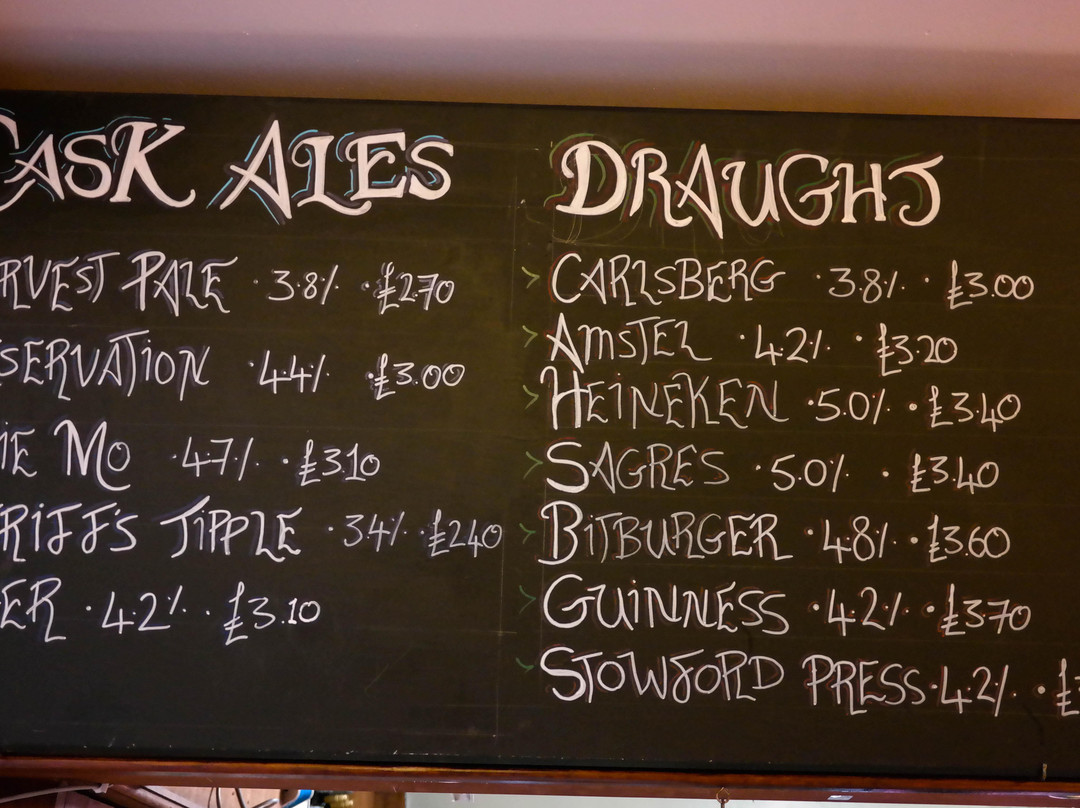 CASK ALES
RVEST PALE · 3.8% · £2.70
SERVATION · 4.4% · £3.00
IE MO · 4.7% · £3.10
RIFF'S TIPPLE · 3.4% · £2.40
ER · 4.2% · £3.10
DRAUGHT
> CARLSBERG · 3.8% · £3.00
> AMSTEL · 4.2% · £3.20
> HEINEKEN · 5.0% · £3.40
> SAGRES · 5.0% · £3.40
> BITBURGER · 4.8% · £3.60
> GUINNESS · 4.2% · £3.70
> STOWFORD PRESS · 4.2% · £